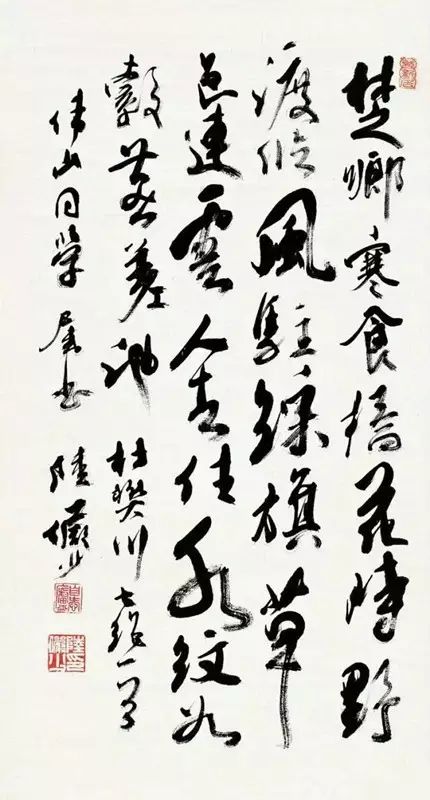 楚鄉寒食橘花時野
渡臨風駐綵旗草
色連雲人去住水紋如
縠燕差池 杜樊川七絕一首
偉山同學屬書 陸儼少